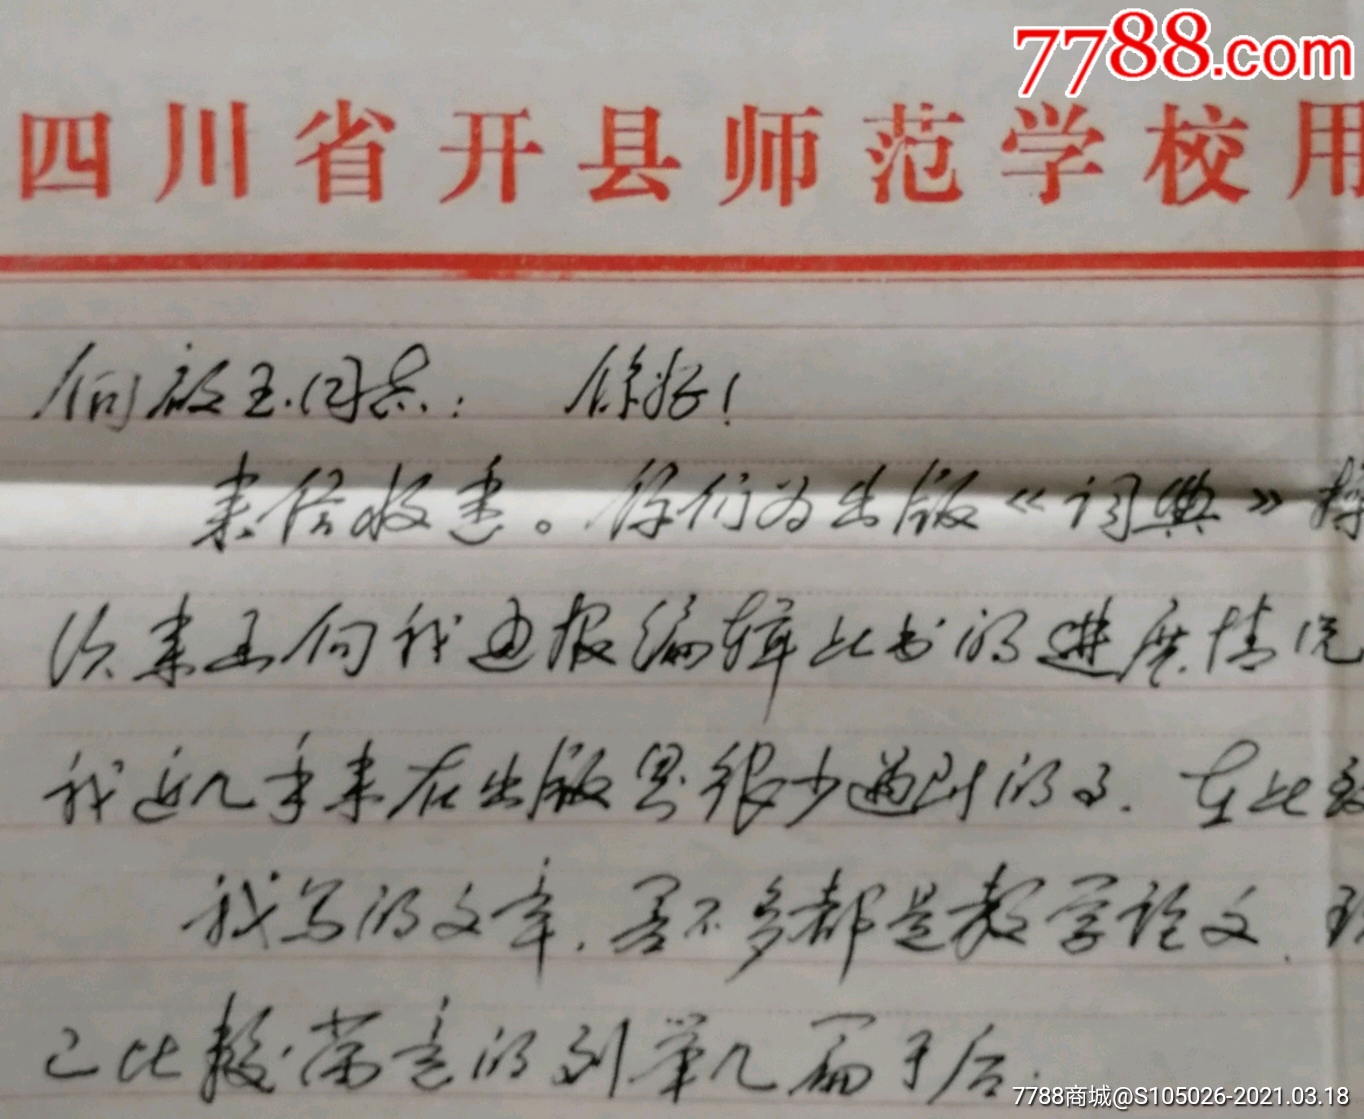 7788.com
四川省开县师范学校用
何啟玉同志：　你好！
来信收悉。你们为出版《词典》
次来函向我通报编辑此书的进度情况
我近几年来在出版界很少遇到的了．在此
我写的文章．差不多都是教学论文．
己比较满意的列举几篇于后．
7788商城@S105026-2021.03.18